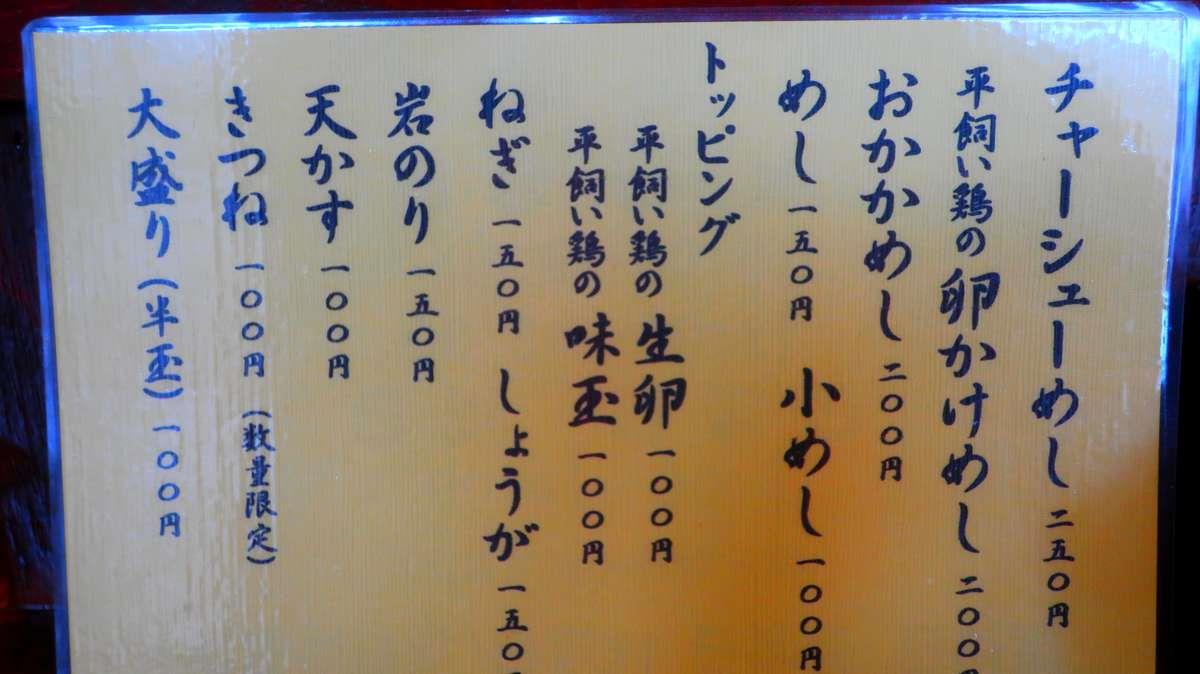 チャーシューめし 二五〇円
平飼い鶏の 卵かけめし 二〇〇
おかかめし 二〇〇円
めし 一五〇円 小めし 一〇〇円
トッピング
平飼い鶏の 生卵 一〇〇円
平飼い鶏の 味玉 一〇〇円
ねぎ 一五〇円 しょうが 一五〇
岩のり 一五〇円
天かす 一〇〇円
きつね 一〇〇円 (数量限定)
大盛り(半玉) 一〇〇円